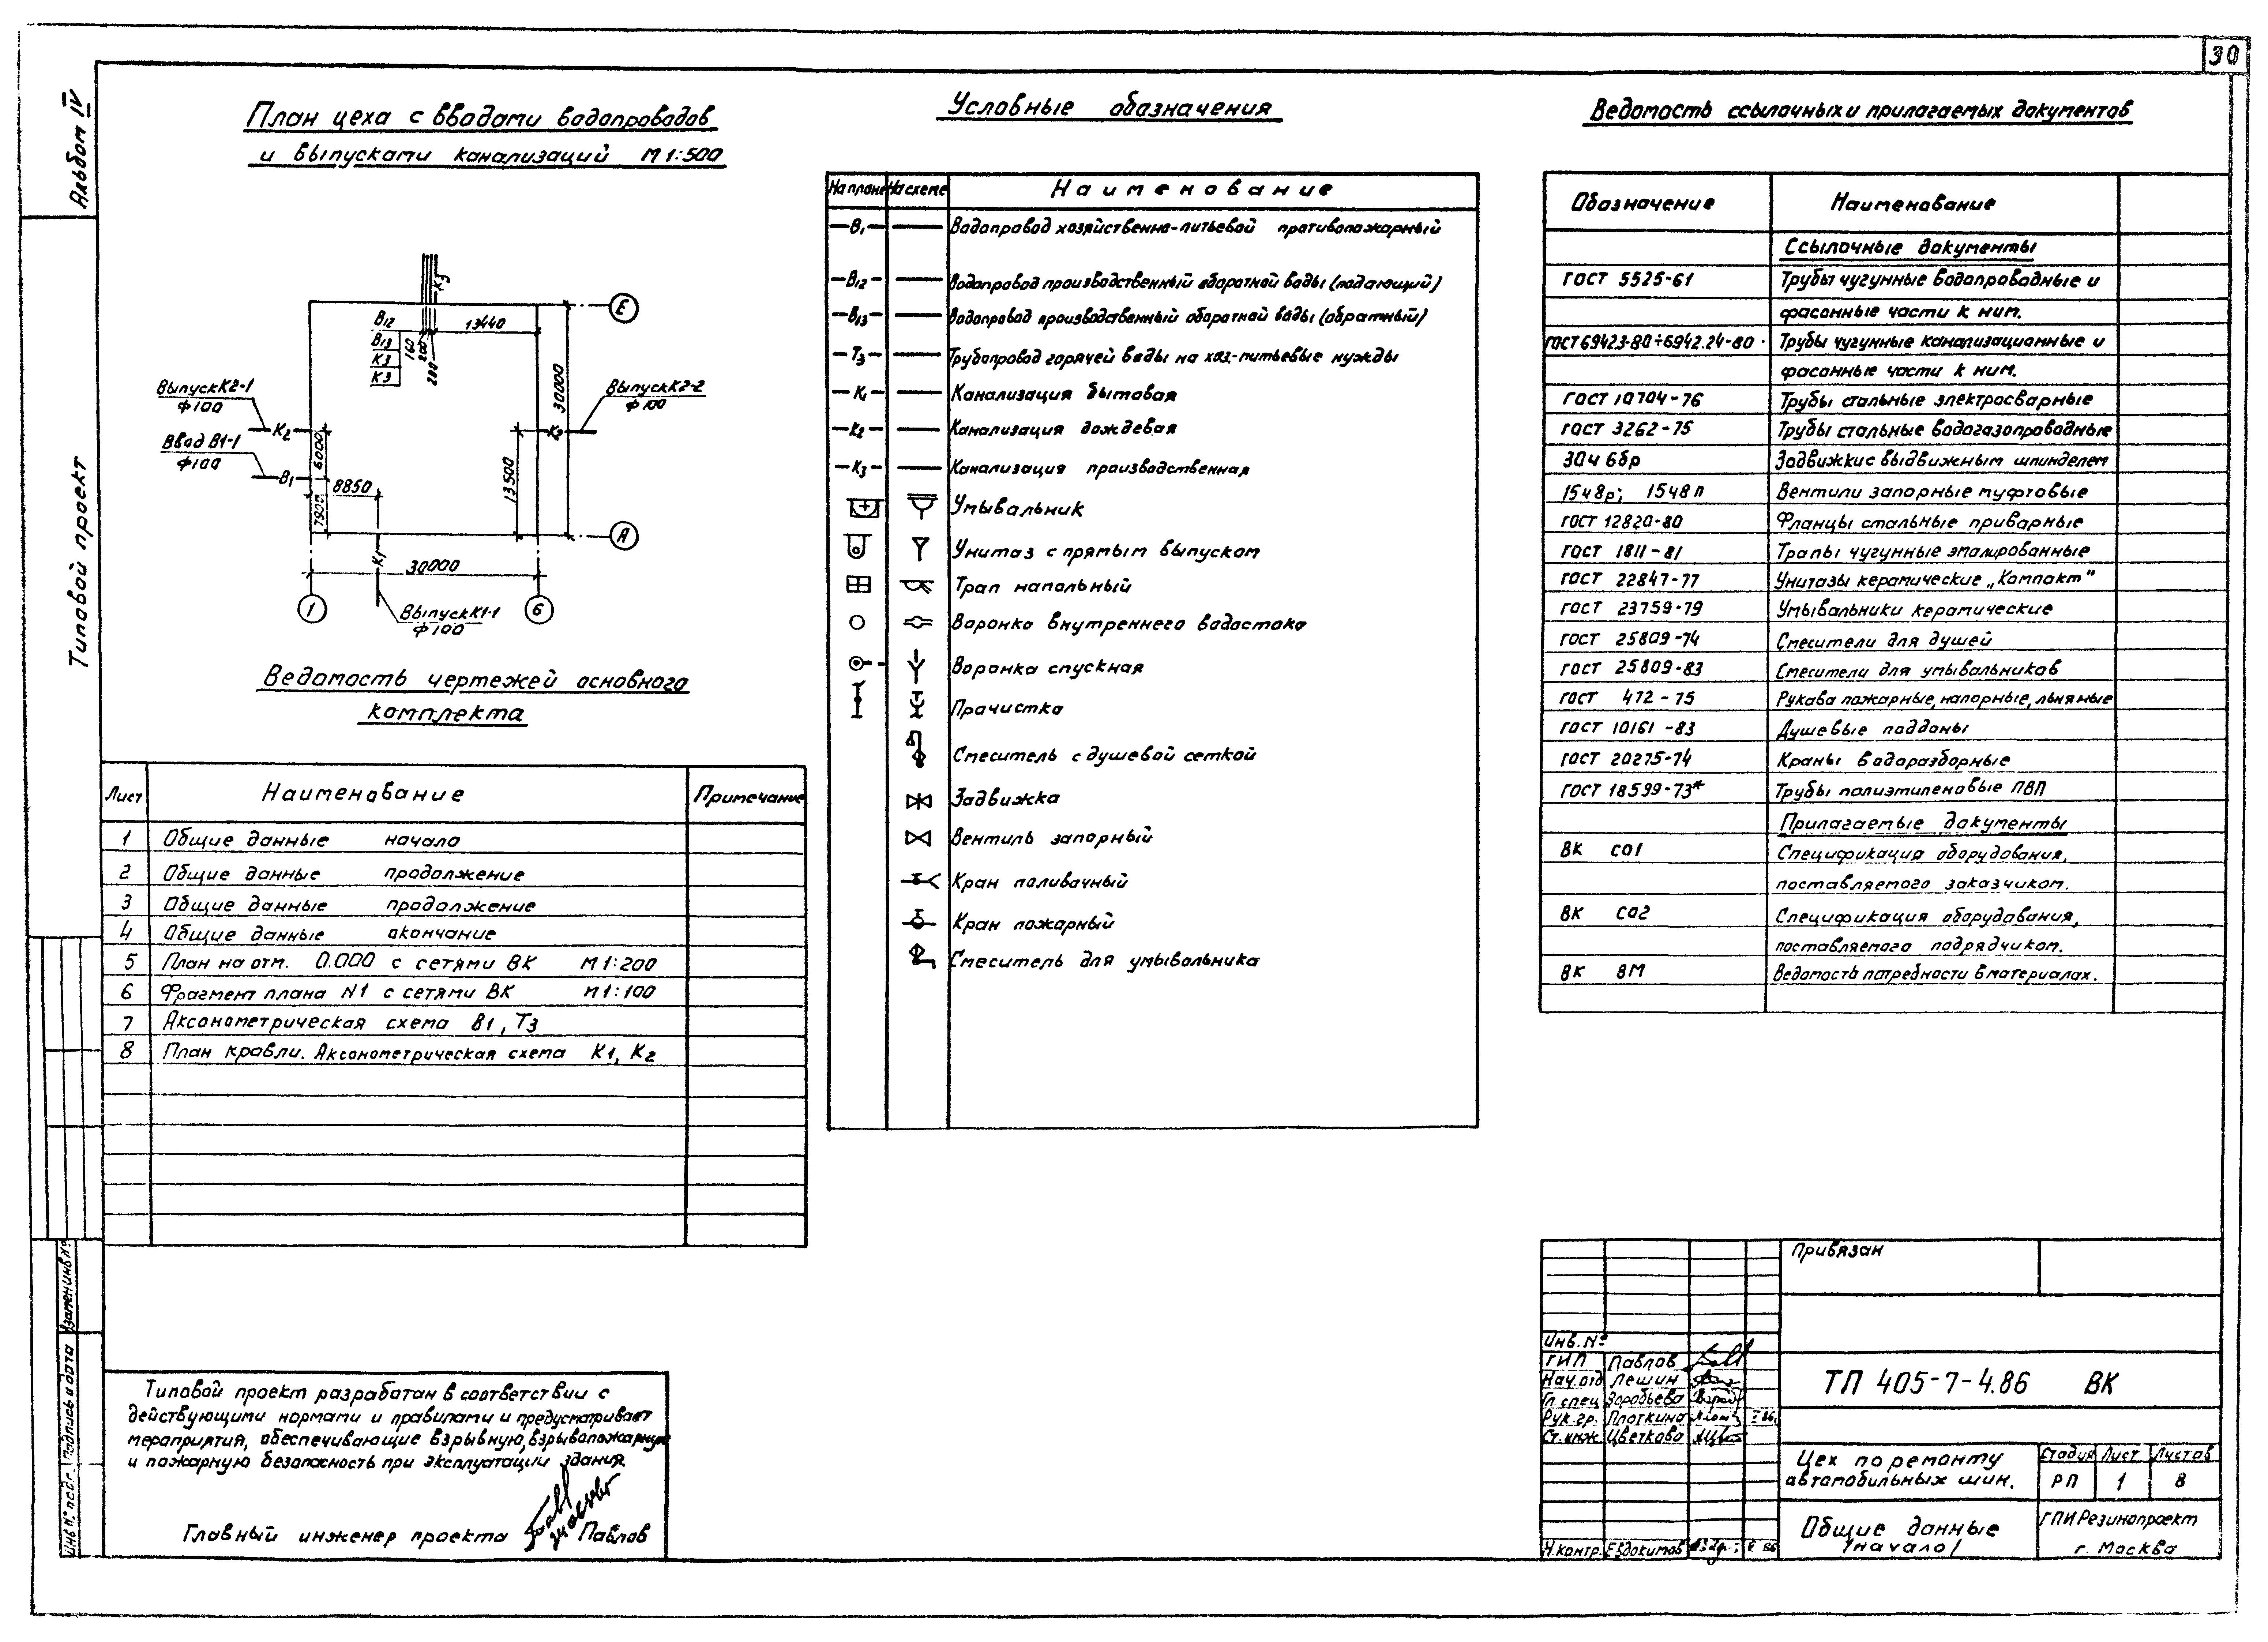 30
Альбом IV
Типовой проект
План цеха с вводами водопроводов
и выпусками канализаций М 1:500
К3
Е
13440
В12
В13
К3
К3
160
200
200
30000
Выпуск К2-1
ф100
К2
Ввод В1-1
ф100
В1
6000
7900
8850
13500
К2
Выпуск К2-2
ф100
А
К1
30000
1
6
Выпуск К1-1
ф100
Ведомость чертежей основного
комплекта
Лист Наименование Примечание
1 Общие данные начало
2 Общие данные продолжение
3 Общие данные продолжение
4 Общие данные окончание
5 План на отм. 0.000 с сетями ВК М 1:200
6 Фрагмент плана N1 с сетями ВК М 1:100
7 Аксонометрическая схема В1, Т3
8 План кровли. Аксонометрическая схема К1, К2
Типовой проект разработан в соответствии с
действующими нормами и правилами и предусматривает
мероприятия, обеспечивающие взрывную, взрывопожарную
и пожарную безопасность при эксплуатации здания.
Главный инженер проекта Павлов
Условные обозначения
На плане На схеме Наименование
В1 Водопровод хозяйственно-питьевой противопожарный
В12 Водопровод производственный оборотной воды (подающий)
В13 Водопровод производственный оборотной воды (обратный)
Т3 Трубопровод горячей воды на хоз-питьевые нужды
К1 Канализация бытовая
К2 Канализация дождевая
К3 Канализация производственная
Умывальник
Унитаз с прямым выпуском
Трап напольный
Воронка внутреннего водостока
Воронка спускная
Прочистка
Смеситель с душевой сеткой
Задвижка
Вентиль запорный
Кран поливочный
Кран пожарный
Смеситель для умывальника
Ведомость ссылочных и прилагаемых документов
Обозначение Наименование
Ссылочные документы
ГОСТ 5525-61 Трубы чугунные водопроводные и
фасонные части к ним.
ГОСТ 6942.3-80÷6942.24-80 Трубы чугунные канализационные и
фасонные части к ним.
ГОСТ 10704-76 Трубы стальные электросварные
ГОСТ 3262-75 Трубы стальные водогазопроводные
30ч 6бр Задвижки с выдвижным шпинделем
15ч8р; 15ч8п Вентили запорные муфтовые
ГОСТ 12820-80 Фланцы стальные приварные
ГОСТ 1811-81 Трапы чугунные эмалированные
ГОСТ 22847-77 Унитазы керамические „Компакт"
ГОСТ 23759-79 Умывальники керамические
ГОСТ 25809-74 Смесители для душей
ГОСТ 25809-83 Смесители для умывальников
ГОСТ 472-75 Рукава пожарные, напорные, льняные
ГОСТ 10161-83 Душевые поддоны
ГОСТ 20275-74 Краны водоразборные
ГОСТ 18599-73* Трубы полиэтиленовые ПВП
Прилагаемые документы
ВК СО1 Спецификация оборудования,
поставляемого заказчиком.
ВК СО2 Спецификация оборудования,
поставляемого подрядчиком.
ВК ВМ Ведомость потребности в материалах.
Привязан
Инв. №
ГИП Павлов
Нач.отд Лешин
Гл.спец Воробьева
Рук.гр. Плоткина
Ст.инж. Цветкова
Н.контр. Евдокимов
ТП 405-7-4.86 ВК
Цех по ремонту
автомобильных шин.
Стадия Лист Листов
РП 1 8
Общие данные
/начало/
ГПИ Резинопроект
г. Москва
Инв № подл. Подпись и дата Взамен инв №